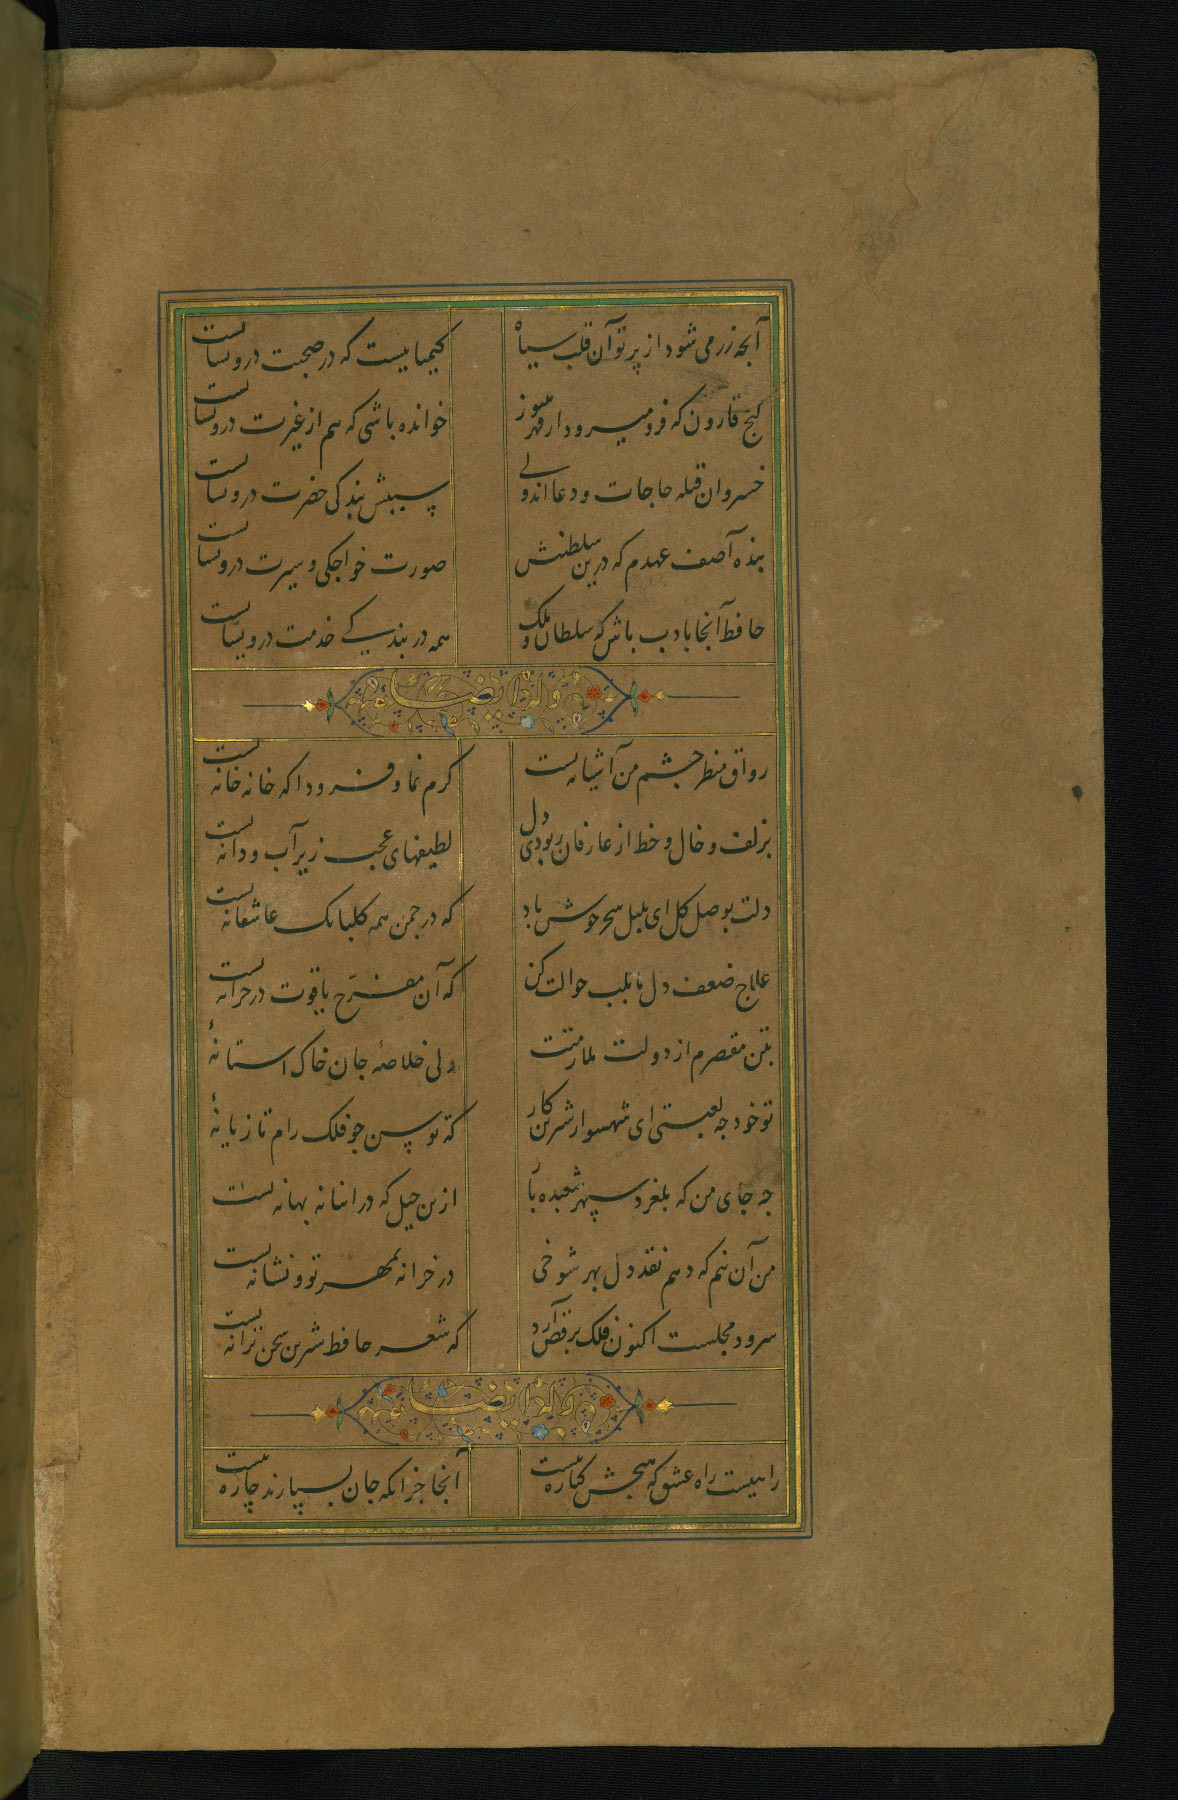 آنچه زر می شود از پرتو آن قلب سیاه کیمیاییست که در صحبت درویشانست
گنج قارون که فرو میرود از قهر هنوز خوانده باشی که هم از غیرت درویشانست
خسروان قبله حاجات و دعااند ولی سببش بندگی حضرت درویشانست
بنده آصف عهدم که درین سلطنتش صورت خواجگی و سیرت درویشانست
حافظ آنجا بادب باش که سلطان و ملک همه در بندگی خدمت درویشانست
وله ایضا
رواق منظر چشم من آشیانه تست کرم نما و فرود آ که خانه خانه تست
بزلف و خال و خط از عارفان ربودی دل لطیفهای عجب زیر آب و دانه تست
دلت بوصل گل ای بلبل سحر خوش باد که در چمن همه گلبانگ عاشقانه تست
علاج ضعف دل ما بلب حوالت کن که آن مفرّح یاقوت در خزانه تست
بتن مقصرم از دولت ملازمتت ولی خلاصهٔ جان خاک استانهٔ
تو خود چه لعبتی ای شهسوار شیرین کار که توسن چو فلک رام تازیانهٔ
چه جای من که بلغزد سپهر شعبده باز ازین حیل که در انبانه بهانه تست
من آن نیم که دهم نقد دل بهر شوخی در خزانه بمهر تو و نشانه تست
سرود مجلست اکنون فلک برقص آرد که شعر حافظ شیرین سخن ترانه تست
وله ایضا
راهیست راه عشق که هیچش کناره نیست آنجا جز آنکه جان بسپارند چاره نیست